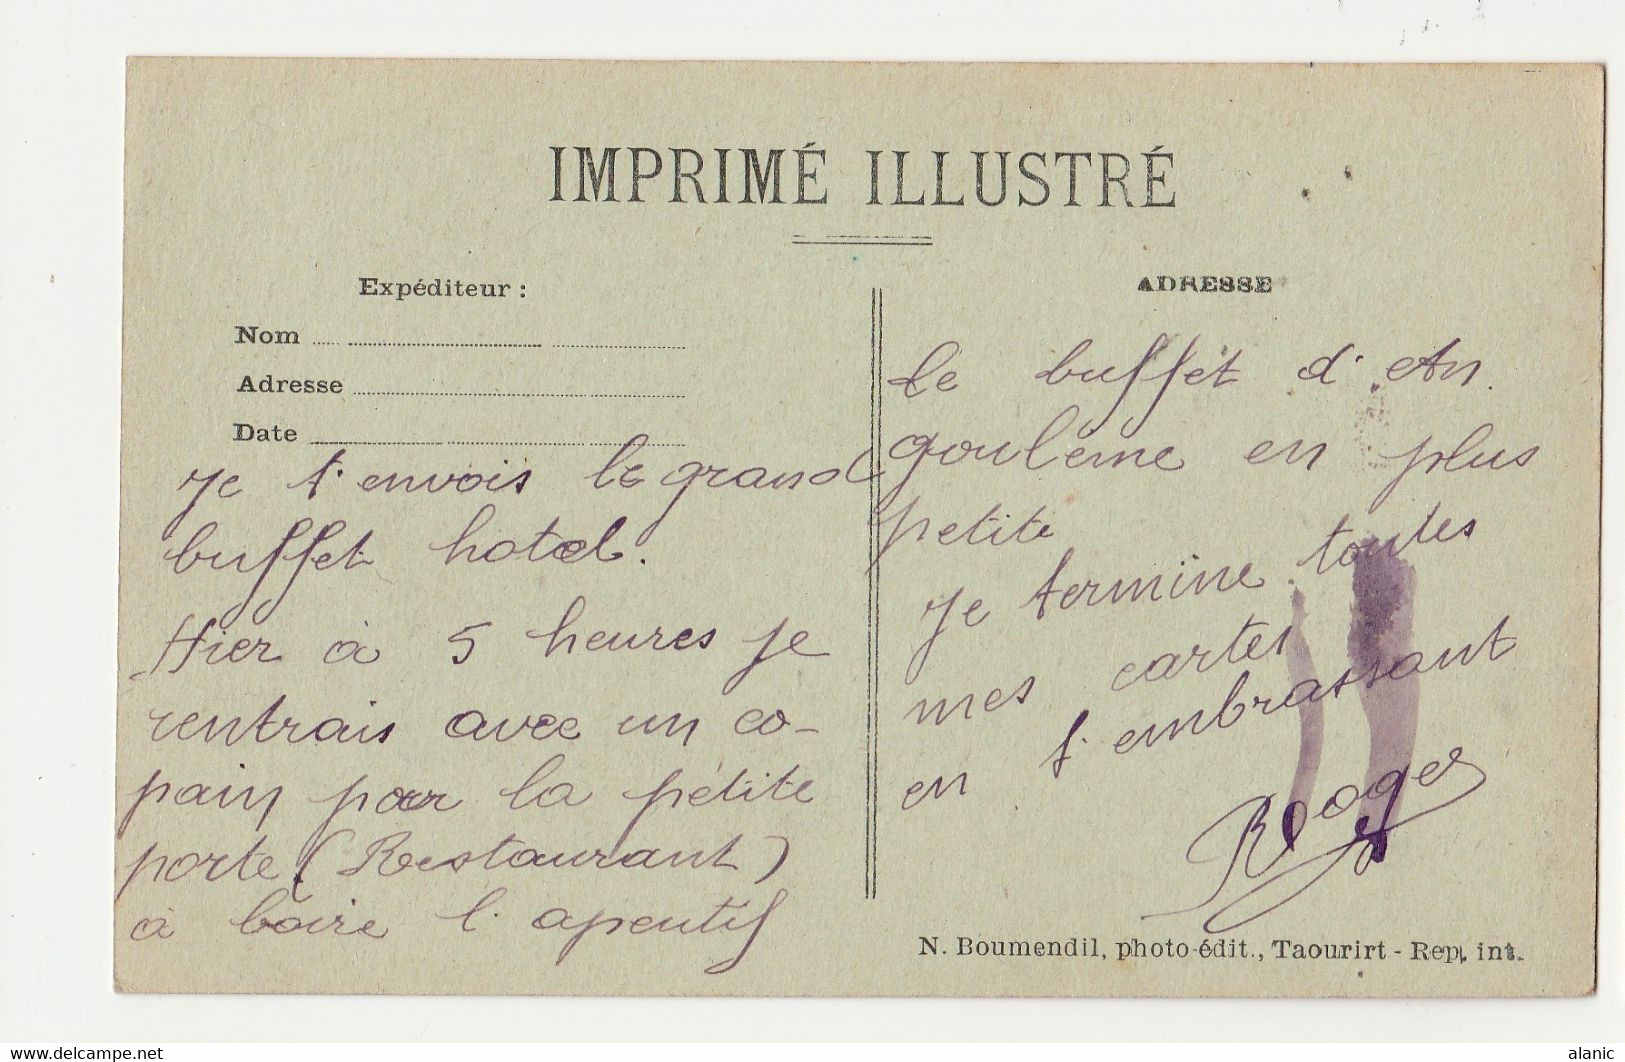 IMPRIMÉ ILLUSTRÉ
Expéditeur :
Nom
Adresse
Date
Je t'envois le grand
buffet hotel.
Hier à 5 heures je
rentrais avec un co-
pain par la petite
porte (Restaurant)
à boire l'aperitif
ADRESSE
le buffet d'An.
gouleme en plus
petite
Je termine toutes
mes cartes
en t'embrassant
Roger
N. Boumendil, photo-édit., Taourirt - Rep. int.
www.delcampe.net
alanic